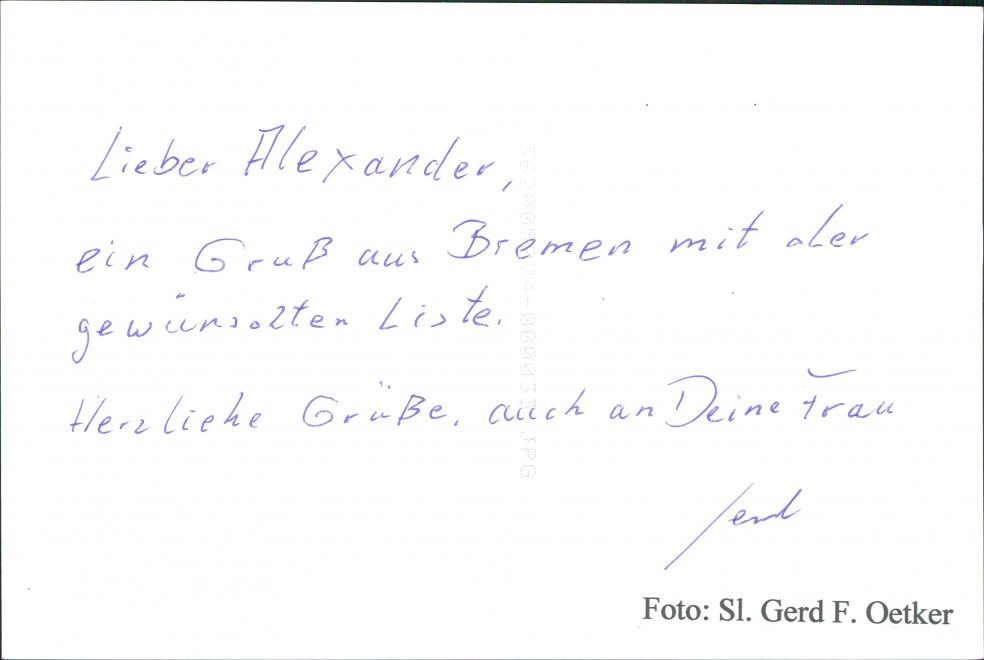 Lieber Alexander,
ein Gruß aus Bremen mit der
gewünschten Liste.
Herzliche Grüße, auch an Deine Frau
Gerd
Foto: Sl. Gerd F. Oetker